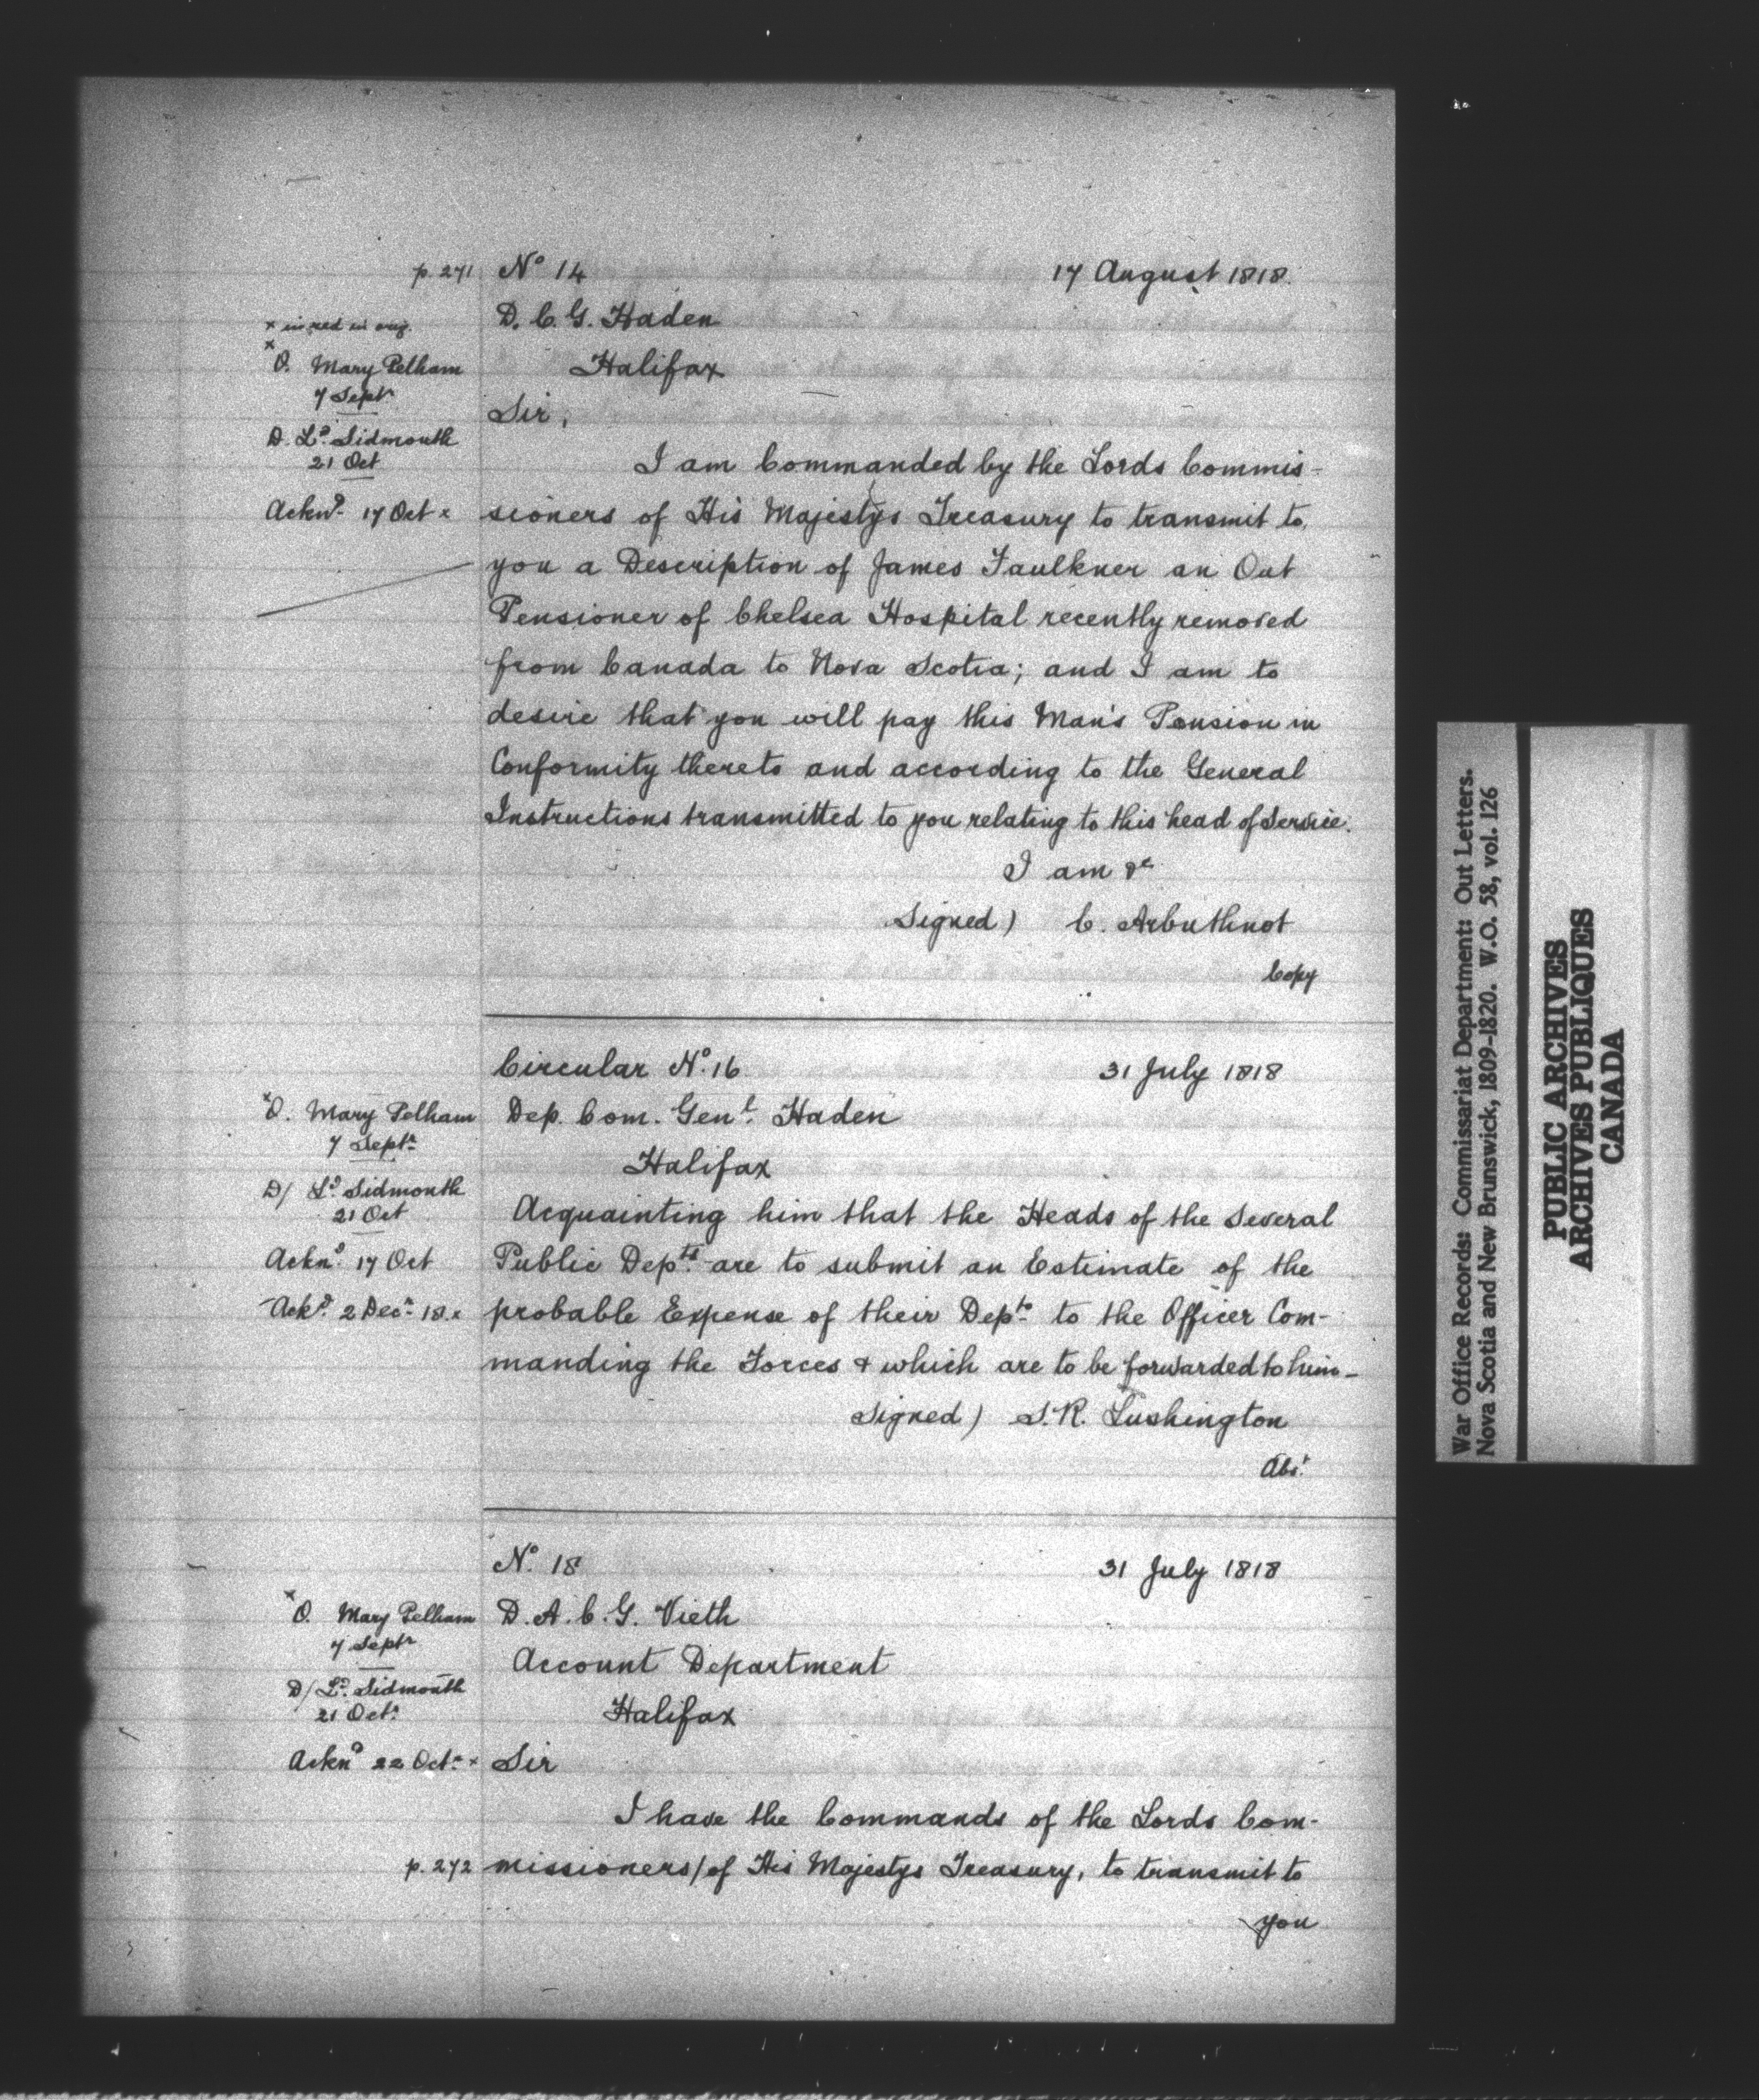 p. 271 Nº 14 17 August 1818.
D. C. G. Haden
Halifax
Sir,
x in red in orig.
x O. Mary Pelham
7 Septr
D. Ld. Sidmouth
21 Oct
Acknd. 17 Oct x
I am Commanded by the Lords Commis-
sioners of His Majestys Treasury to transmit to
you a Description of James Faulkner an Out
Pensioner of Chelsea Hospital recently removed
from Canada to Nova Scotia; and I am to
desire that you will pay this Man's Pension in
Conformity thereto and according to the General
Instructions transmitted to you relating to this head of Service.
I am &c
Signed) C. Arbuthnot
Copy
Circular Nº. 16 31 July 1818
Dep. Com. Genl. Haden
Halifax
x O. Mary Pelham
7 Septr.
D/ Ld. Sidmouth
21 Oct
Acknd. 17 Oct
Ackd. 2 Decr. 18. x
Acquainting him that the Heads of the Several
Public Depts. are to submit an Estimate of the
probable Expense of their Depts. to the Officer Com-
manding the Forces & which are to be forwarded to him-
Signed) S. R. Lushington
Abst.
Nº. 18 31 July 1818
D. A. C. G. Vieth
Account Department
Halifax
x O. Mary Pelham
7 Septr
D/ Ld. Sidmouth
21 Octr.
Acknd 22 Octr. x
Sir
I have the Commands of the Lords Com-
p. 272 missioners/of His Majestys Treasury, to transmit to
you
War Office Records: Commissariat Department: Out Letters.
Nova Scotia and New Brunswick, 1809-1820. W.O. 58, vol. 126
PUBLIC ARCHIVES
ARCHIVES PUBLIQUES
CANADA